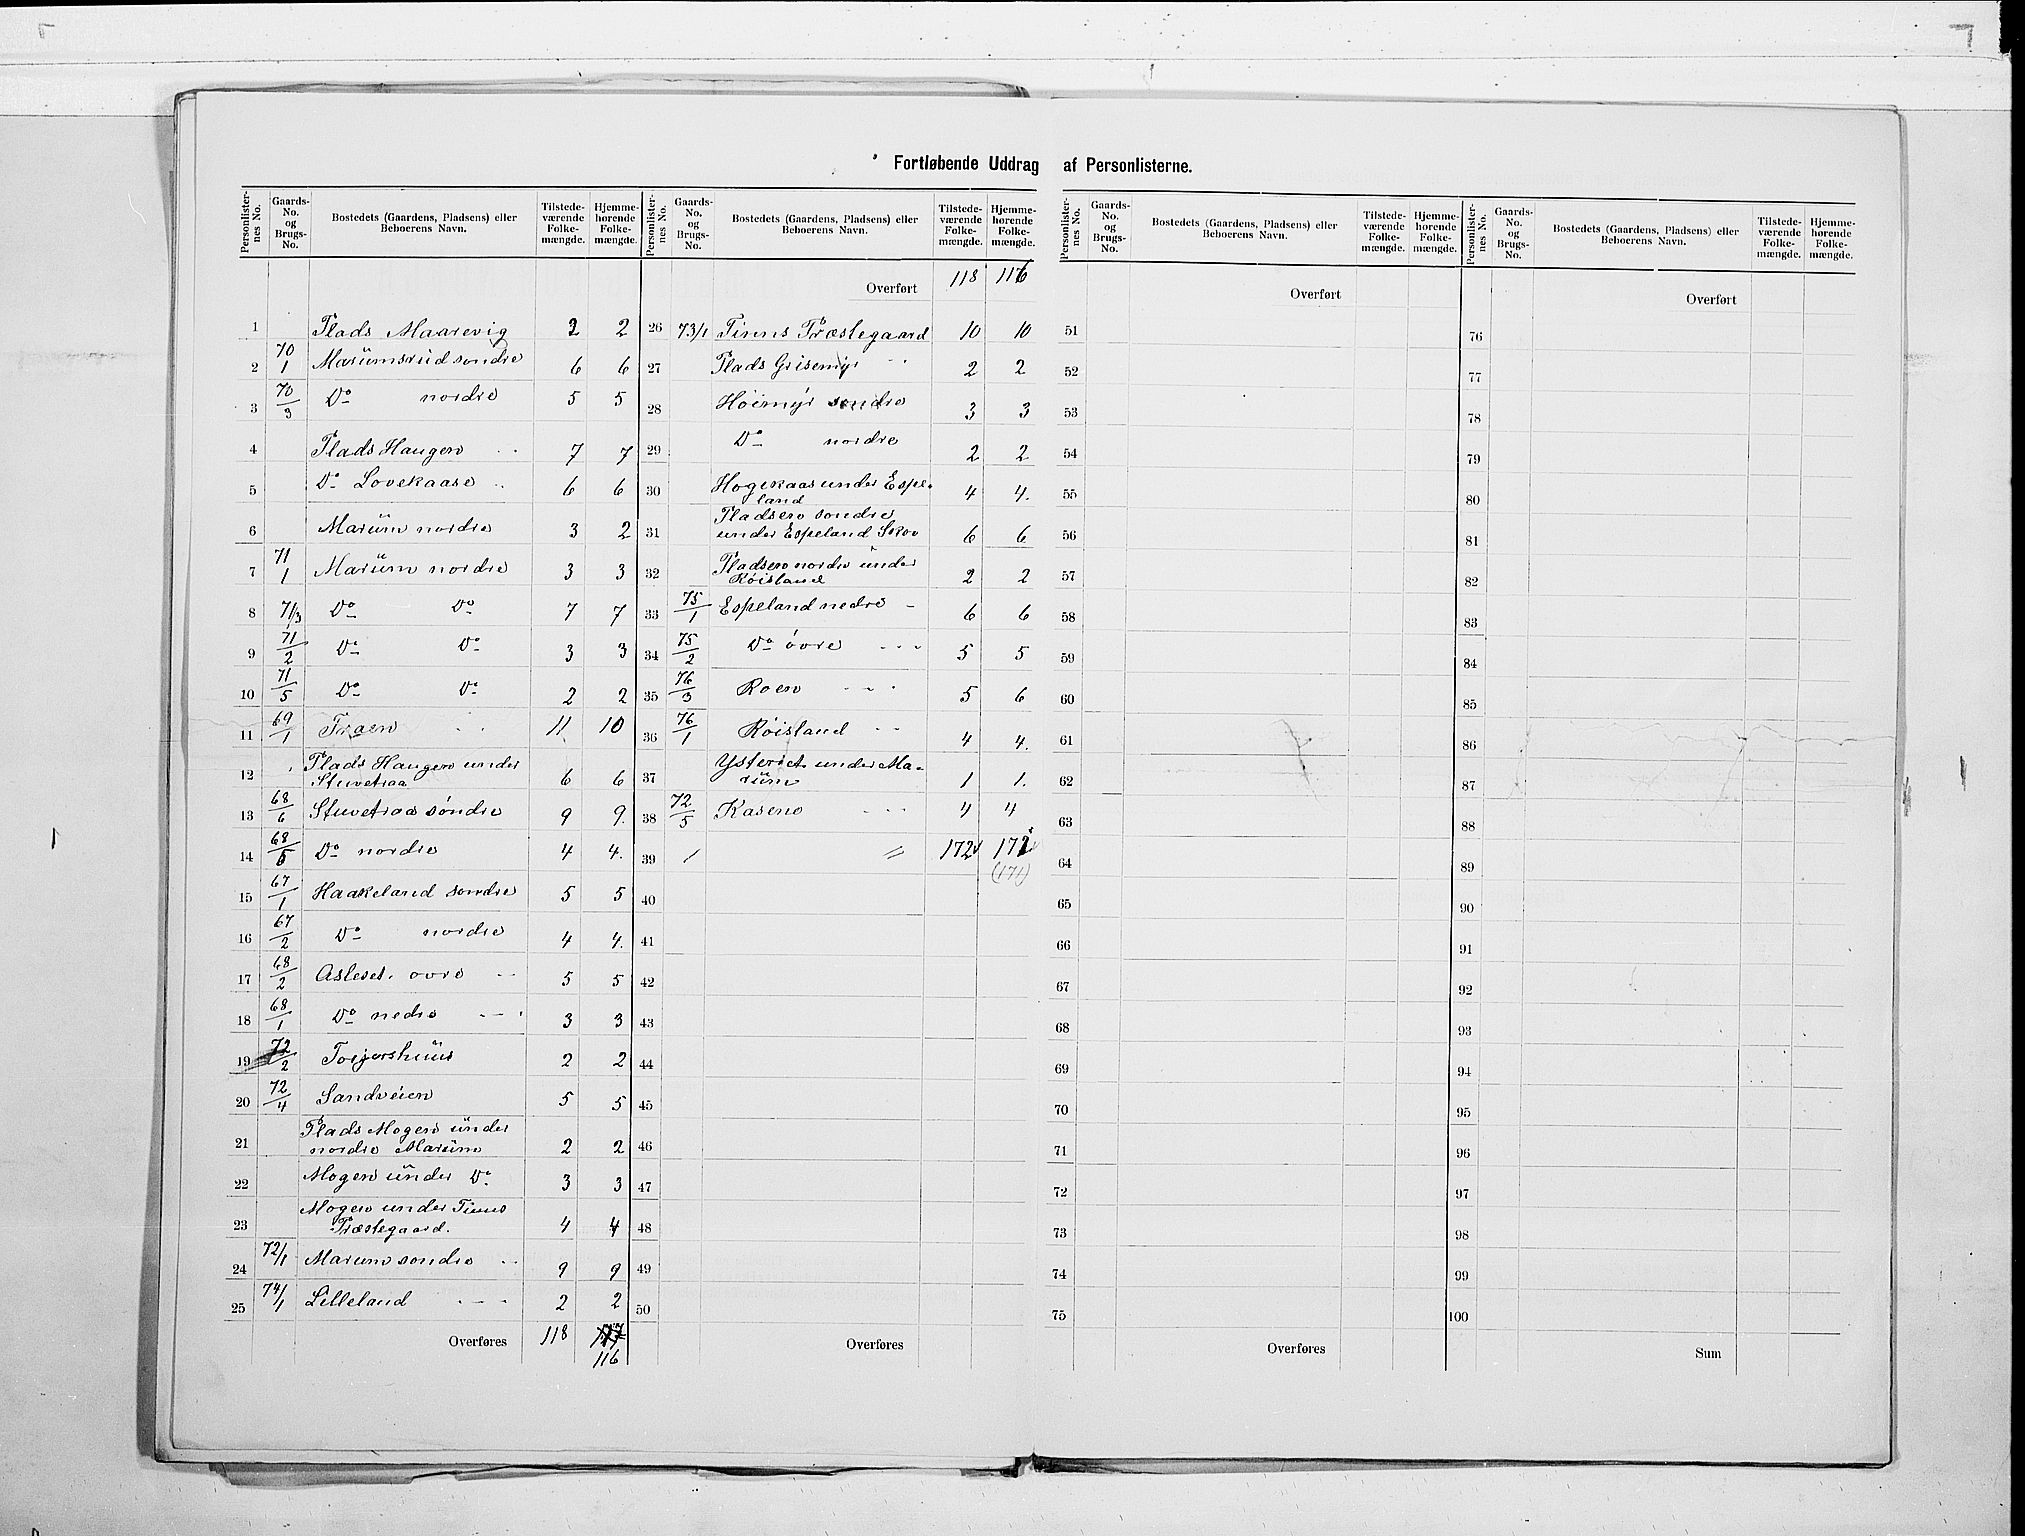 Fortløbende Uddrag af Personlisterne.
Personlister-nes No. Gaards-No. og Brugs-No. Bostedets (Gaardens, Pladsens) eller Beboerens Navn. Tilstede-værende Folke-mængde. Hjemme-hørende Folke-mængde.
1 Plads Maarevig 2 2
2 70/1 Marŭmsrud søndre 6 6
3 70/3 Do nordre 5 5
4 Plads Haugen 7 7
5 Do Lovekaase 6 6
6 Marŭm nordre 3 2
7 71/1 Marŭm nordre 3 3
8 71/3 Do Do 7 7
9 71/2 Do Do 3 3
10 71/5 Do Do 2 2
11 69/1 Traen 11 10
12 Plads Haugen under
Stuvetraa 6 6
13 68/6 Stuvetraa søndre 9 9.
14 68/5 Do nordre 4 4.
15 67/1 Haakeland søndre 5 5
16 67/2 Do nordre 4 4.
17 68/2 Asleset øvre 5 5
18 68/1 Do nedre 3 3
19 72/2 Torjershŭŭs 2 2
20 72/4 Sandveien 5 5
21 Plads Mogen ŭnder
nordre Marŭm 2 2
22 Mogen ŭnder Do 3 3
23 Mogen under Tinns
Præstegaard. 4 4
24 72/1 Marum søndre 9 9
25 74/1 Lilleland 2 2
Overføres 118 117
116
Personlister-nes No. Gaards-No. og Brugs-No. Bostedets (Gaardens, Pladsens) eller Beboerens Navn. Tilstede-værende Folke-mængde. Hjemme-hørende Folke-mængde.
Overført 118 116
26 73/1 Tinns Præstegaard 10 10
27 Plads Grisemyr 2 2
28 Høimyr søndre 3 3
29 Do nordre 2 2
30 Høgekaas under Espe-
land 4 4.
31 Pladsen søndre
under Espeland Skov 6 6
32 Pladsen nordre under
Røisland 2 2
33 75/1 Espeland nedre 6 6
34 75/2 Do øvre 5 5
35 76/3 Roen 5 6
36 76/1 Røisland 4 4.
37 Ysteriet under Ma-
rŭm 1 1.
38 72/5 Kasene 4 4
39 172 172
(171)
40
41
42
43
44
45
46
47
48
49
50
Overføres
Personlister-nes No. Gaards-No. og Brugs-No. Bostedets (Gaardens, Pladsens) eller Beboerens Navn. Tilstede-værende Folke-mængde. Hjemme-hørende Folke-mængde.
Overført
51
52
53
54
55
56
57
58
59
60
61
62
63
64
65
66
67
68
69
70
71
72
73
74
75
Overføres
Personlister-nes No. Gaards-No. og Brugs-No. Bostedets (Gaardens, Pladsens) eller Beboerens Navn. Tilstede-værende Folke-mængde. Hjemme-hørende Folke-mængde.
Overført
76
77
78
79
80
81
82
83
84
85
86
87
88
89
90
91
92
93
94
95
96
97
98
99
100
Sum